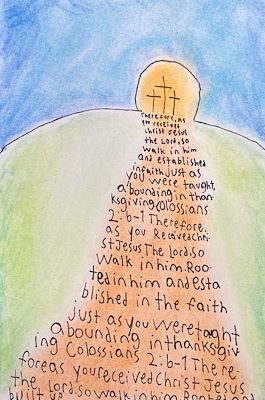 Therefore, as
you received
Christ Jesus
the Lord, so
walk in him
and established
in faith, just as
you were taught,
abounding in than-
ksgiving Colossians
2:6-1 Therefore,
as you ReceivedChri-
stJesus The Lord, so
walk in him. Roo-
ted in him and esta
blished in the faith
just as you were taught
abounding in thanksgiv
ing Colossians 2:6-1 There-
fore as you received Christ Jesus
the Lord, so walk in him Rooted and
built up